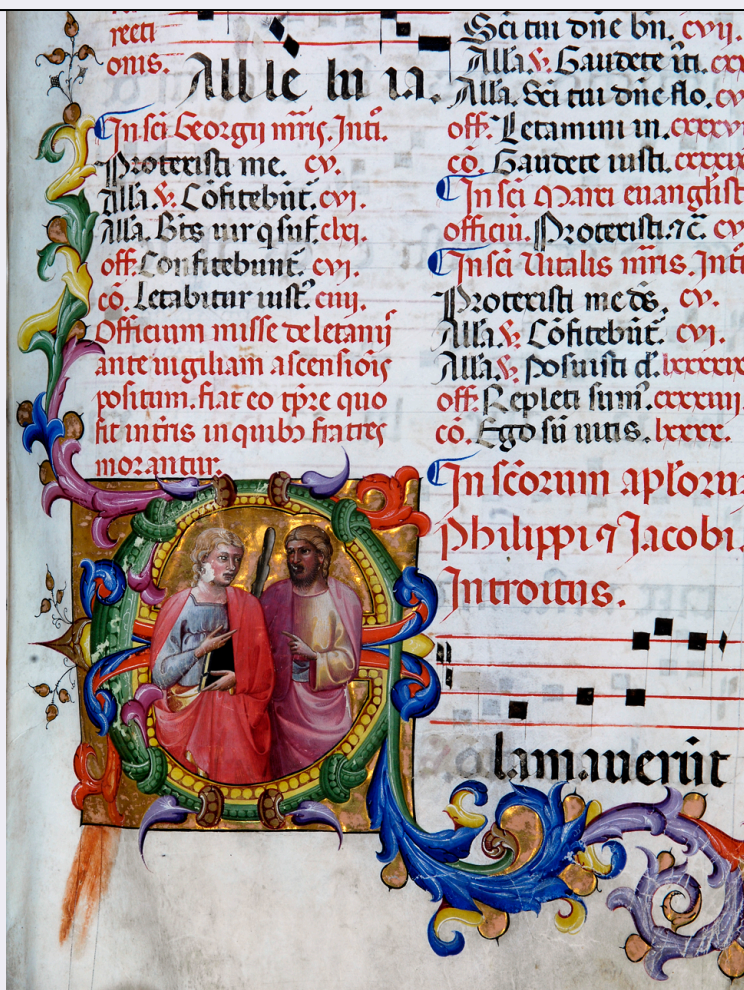 recti
onis.
Alle lu ia.
In sci Georgii mr̄is. Intr̄.
Protexisti me. cv.
Alla. V. Cōfitebūt. cvi.
Alla. Btꝰ uir q suf. clxi.
off. Confitebunt. cvi.
cō. Letabitur iust. ciiii.
Officium misse de letanii
ante uigiliam ascensiōis
positum. fiat eo tp̄re quo
fit in tr̄is in quibꝫ fratres
morantur.
Sci tui dn̄e bn̄. cvii.
Alla. V. Gaudete iti. cx
Alla. Sci tui dn̄e flo. cv
off. Letamini in. cxxxv
cō. Gaudete iusti. cxxxix
In sci Marci euanglist
officiū. Protexisti. ⁊c̄. cv
In sci Uitalis mr̄is. Intr̄
Protexisti me dꝰs. cv.
Alla. V. Cōfitebūt. cvi.
Alla. V. Posuisti d. lxxxxix
off. Repleti sum. cxxxiiii
cō. Ego sū uitis. lxxxx.
In scōrum aplōru
Philippi ⁊ Jacobi.
Introitus.
E
lamauerūt